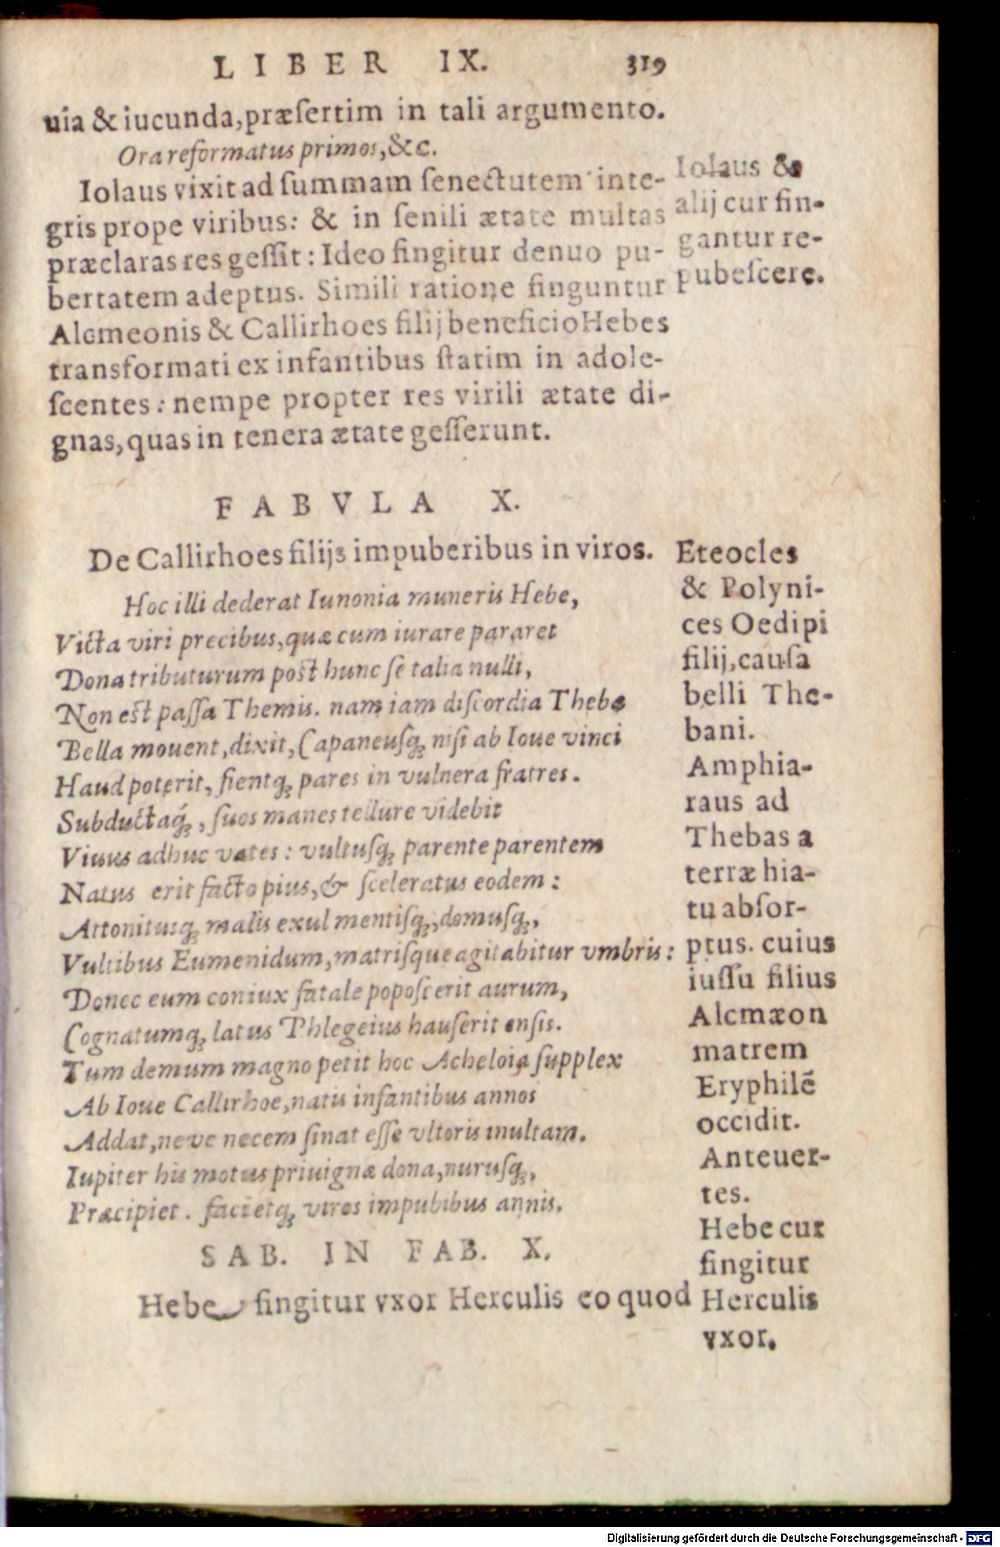 LIBER IX. 319
uia & iucunda, præſertim in tali argumento.
Ora reformatus primos, &c.
Iolaus vixit ad ſummam ſenectutem inte-
gris prope viribus: & in ſenili ætate multas
præclaras res geſſit: Ideo fingitur denuo pu-
bertatem adeptus. Simili ratione finguntur
Alcmeonis & Callirhoes filij beneficio Hebes
transformati ex infantibus ſtatim in adole-
ſcentes: nempe propter res virili ætate di-
gnas, quas in tenera ætate geſſerunt.
Iolaus &
alij cur fin-
gantur re-
pubeſcere.
FABVLA X.
De Callirhoes filijs impuberibus in viros.
Hoc illi dederat Iunonia muneris Hebe,
Victa viri precibus, quæ cum iurare pararet
Dona tributurum poſt hunc ſe talia nulli,
Non eſt paſſa Themis. nam iam diſcordia Thebæ
Bella mouent, dixit, Capaneuſq; niſi ab Ioue vinci
Haud poterit, fientq; pares in vulnera fratres.
Subductaq́;, ſuos manes tellure videbit
Viuus adhuc vates: vultuſq; parente parentem
Natus erit facto pius, & ſceleratus eodem:
Attonitusq; malis exul mentiſq;, domuſq;,
Vultibus Eumenidum, matriſque agitabitur vmbris:
Donec eum coniux fatale popoſcerit aurum,
Cognatumq; latus Phlegeius hauſerit enſis.
Tum demum magno petit hoc Acheloia ſupplex
Ab Ioue Callirhoe, natis infantibus annos
Addat, neve necem ſinat eſſe vltoris inultam.
Iupiter his motus priuignæ dona, nuruſq;,
Præcipiet. facietq; viros impubibus annis.
Eteocles
& Polyni-
ces Oedipi
filij, cauſa
belli The-
bani.
Amphia-
raus ad
Thebas a
terræ hia-
tu abſor-
ptus. cuius
iuſſu filius
Alcmæon
matrem
Eryphilē
occidit.
Anteuer-
tes.
Hebe cur
fingitur
Herculis
vxor.
SAB. IN FAB. X.
Hebe fingitur vxor Herculis eo quod
Digitalisierung gefördert durch die Deutsche Forschungsgemeinschaft - DFG